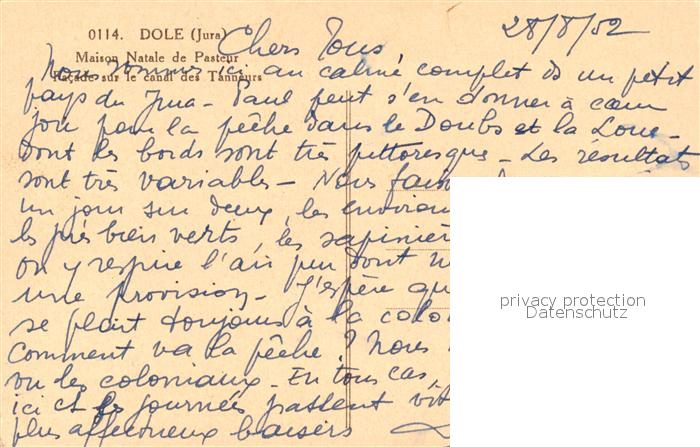 0114. DOLE (Jura)
Maison Natale de Pasteur
Façade sur le canal des Tanneurs
28/8/52
Chers Tous,
Nous sommes ici au calme complet ds un petit
pays du Jura - Paul peut s'en donner à cœur
joie pour la pêche dans le Doubs et la Loue -
dont les bords sont très pittoresques - Les résultats
sont très variables - Nous
un jour sur deux, les
les prés bien verts, les
on y respire l'air pur dont
une provision - J'espère
se plait toujours à la
Comment va la pêche ? Nous
ou les coloniaux - En tous cas,
ici les journées passent
plus affectueux baisers
privacy protection
Datenschutz